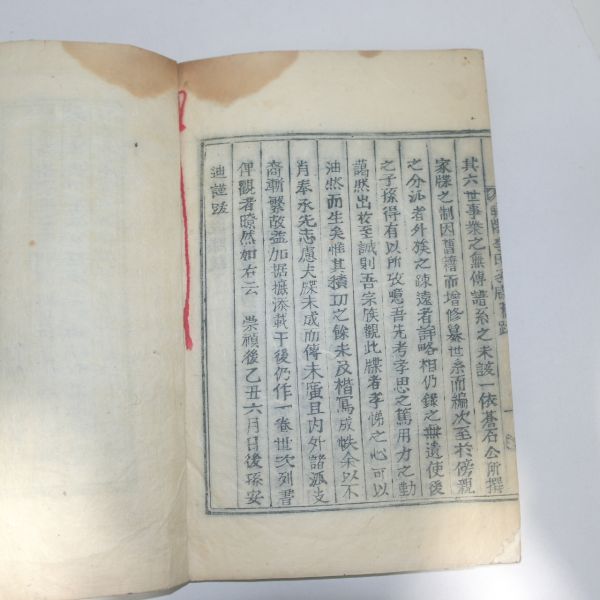 其六世事蹟之無傳譜系之未該一依蒼石公所撰
家牒之制因舊譜而增修纂世系而編次至於傍親
之分派者外族之疎遠者詳略相仍錄之無遺使後
之子孫得有以所攷噫吾先考孝思之篤用力之勤
藹然出於至誠則吾宗族觀此牒者孝悌之心可以
油然而生矣惟其積功之餘未及楷寫成帙余以不
肖奉承先志慮夫牒未成而傳未廣且內外諸派支
裔漸繁故益加据摭添載于後仍作一卷世次列書
俾觀者瞭然如右云 崇禎後乙丑六月日後孫安
迪謹跋